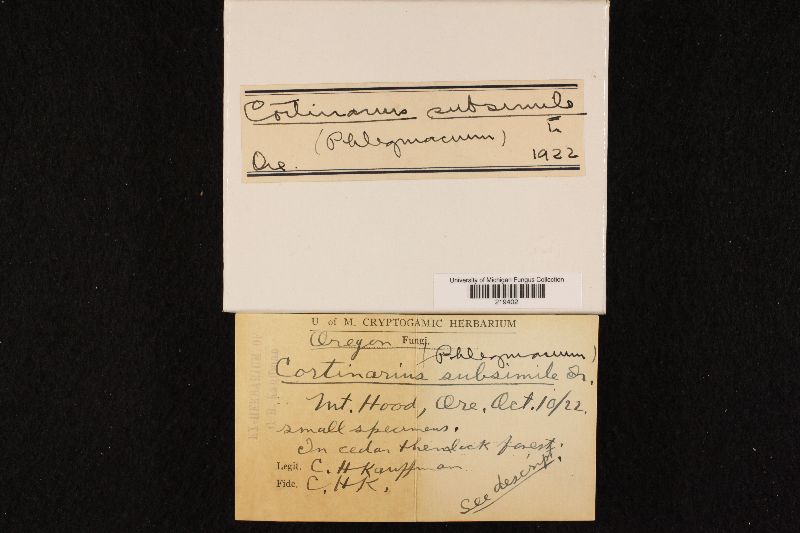 Cortinarius subsimile
(Phlegmacium) Fr.
Ore. 1922
University of Michigan Fungus Collection
219402
U of M. CRYPTOGAMIC HERBARIUM
Oregon Fungi.
(Phlegmacium)
Cortinarius subsimile Fr.
Mt. Hood, Ore. Oct. 10/22.
small specimens.
In cedar & hemlock forest.
Legit. C. H Kauffman
Fide. C. H K.
See descript.
EX-HERBARIUM OF